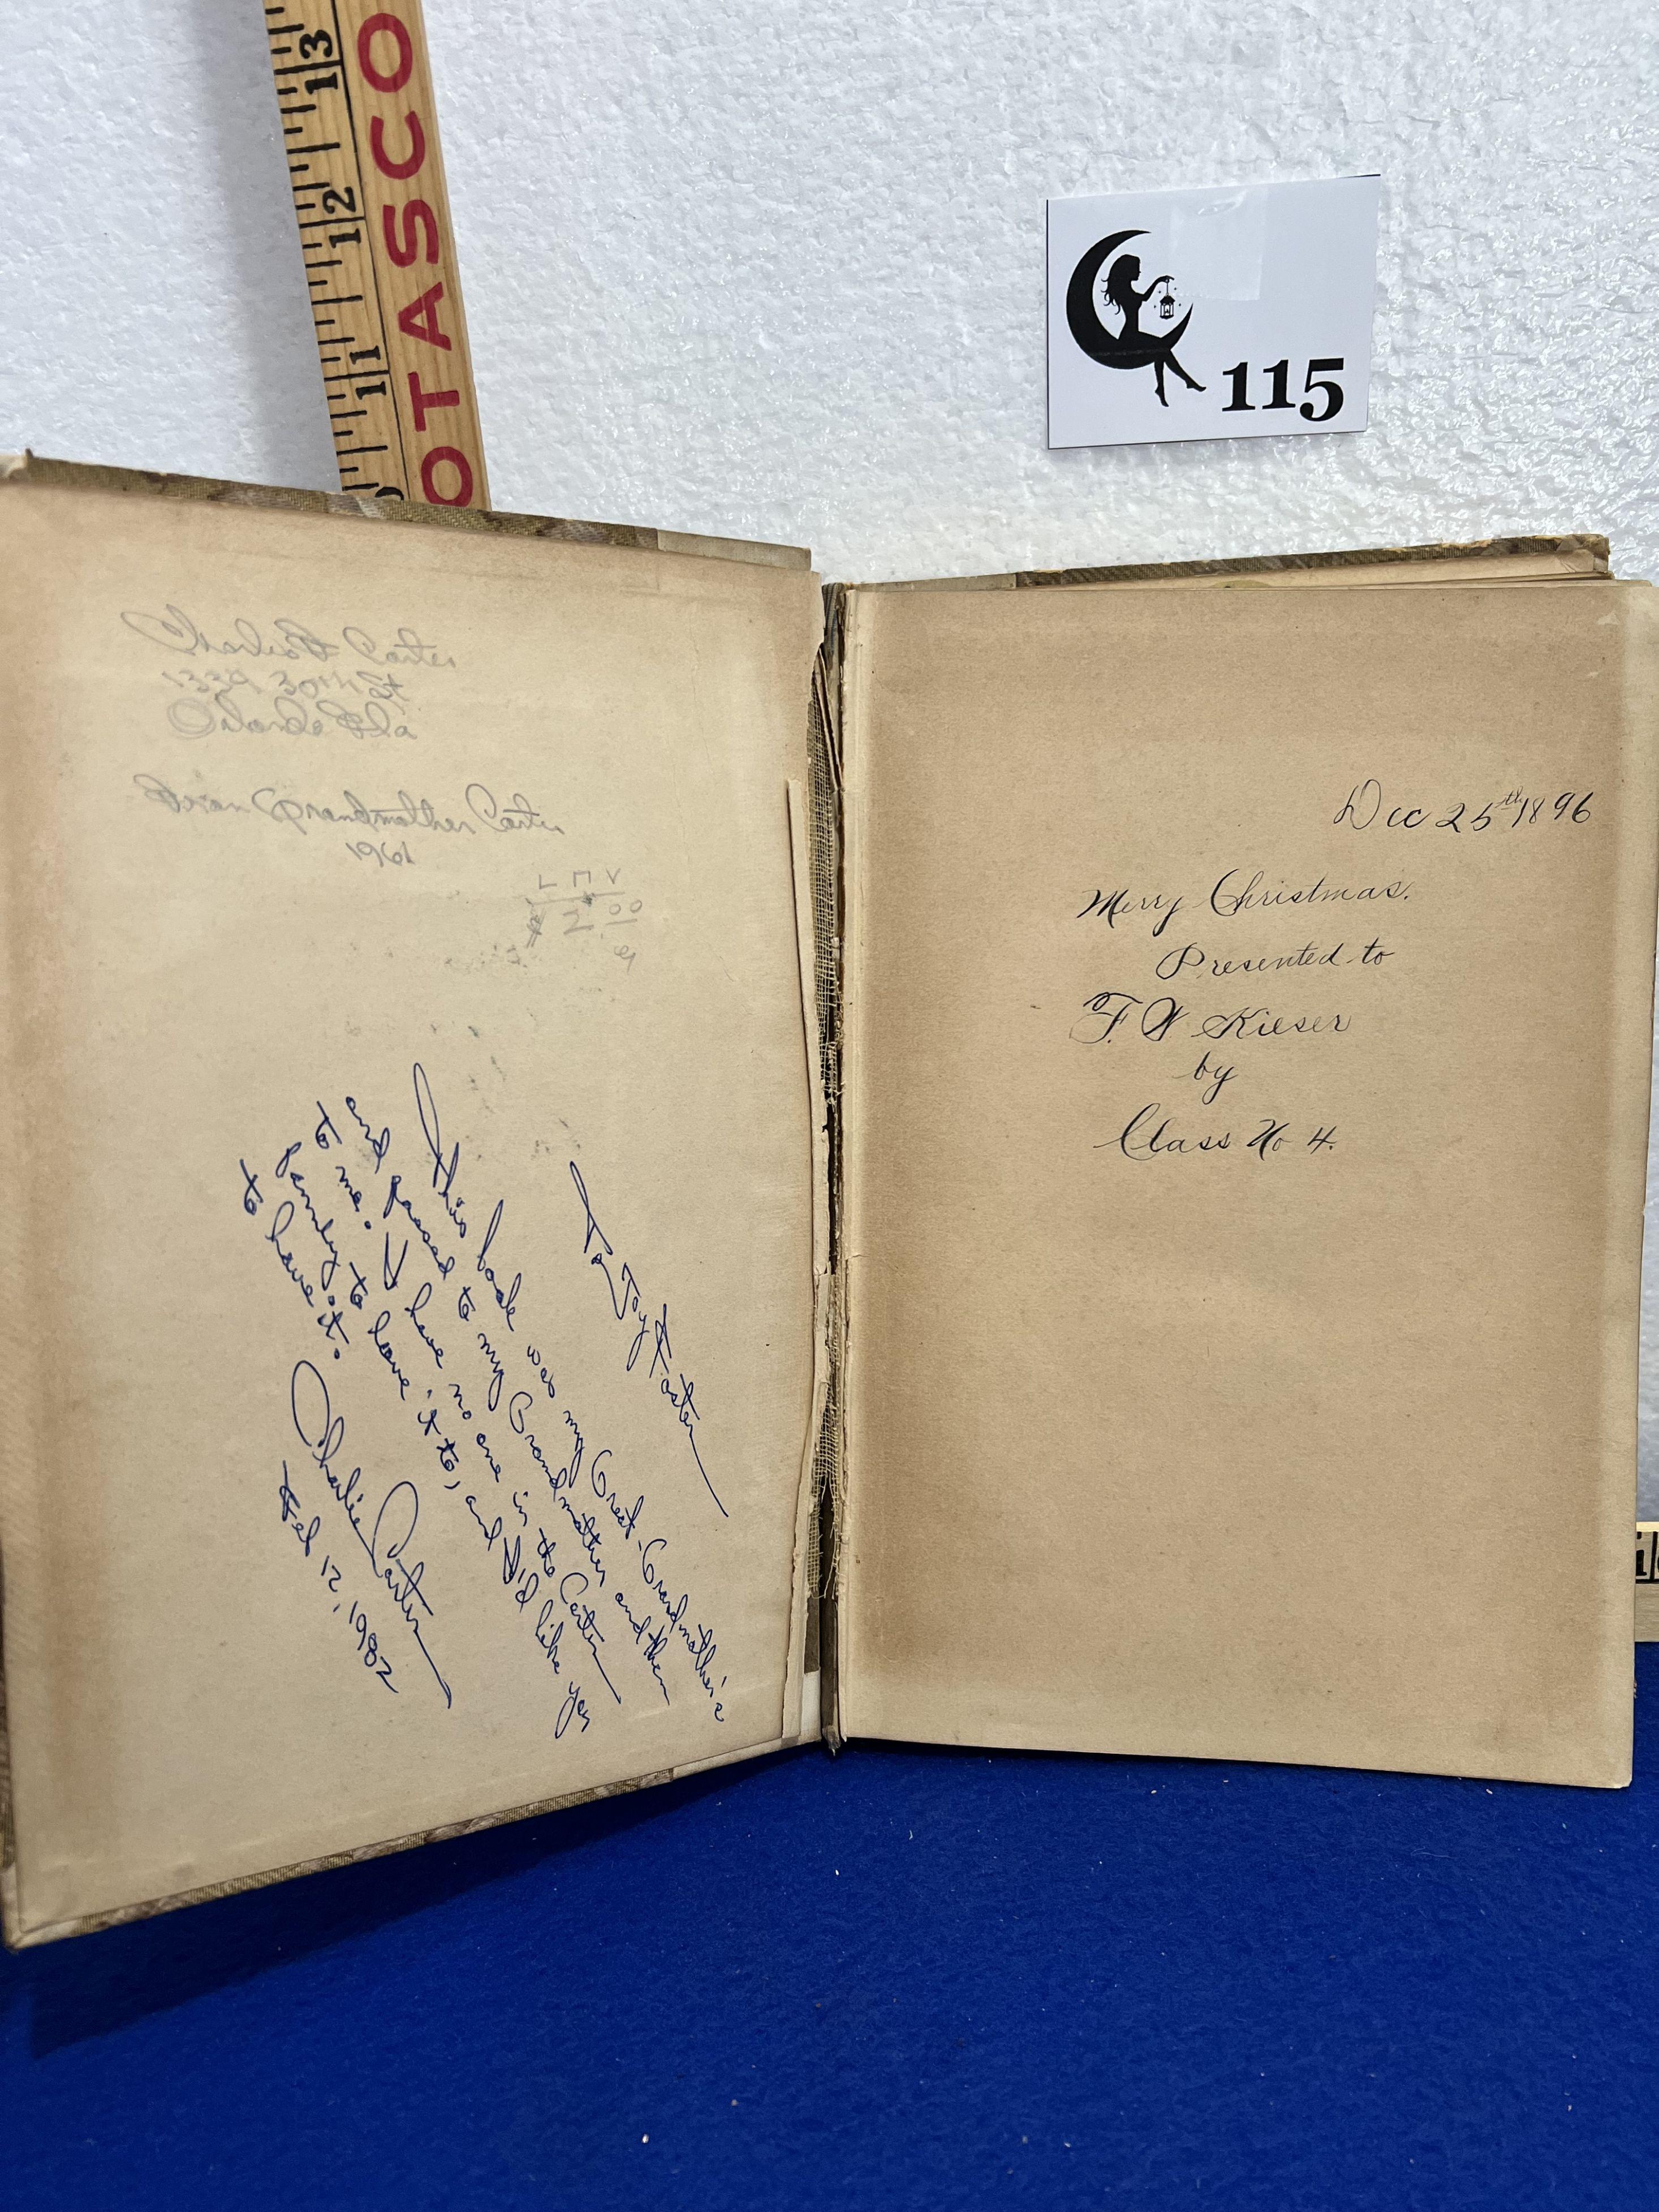 13
12
11
OTASCO
115
Charles F Carter
1339 30TH St
Orlando Fla
From Grandmother Carter
1961
LMV
$2.00
To Joy Foster
This book was my Great-Grandmother's
and passed to my Grandmother and then
to me. I have no one in the Carter
family to leave it to, and I'd like you
to have it.
Charlie Carter
Feb 12, 1982
Dec 25th 1896
Merry Christmas.
Presented to
F. W Kieser
by
Class No 4.